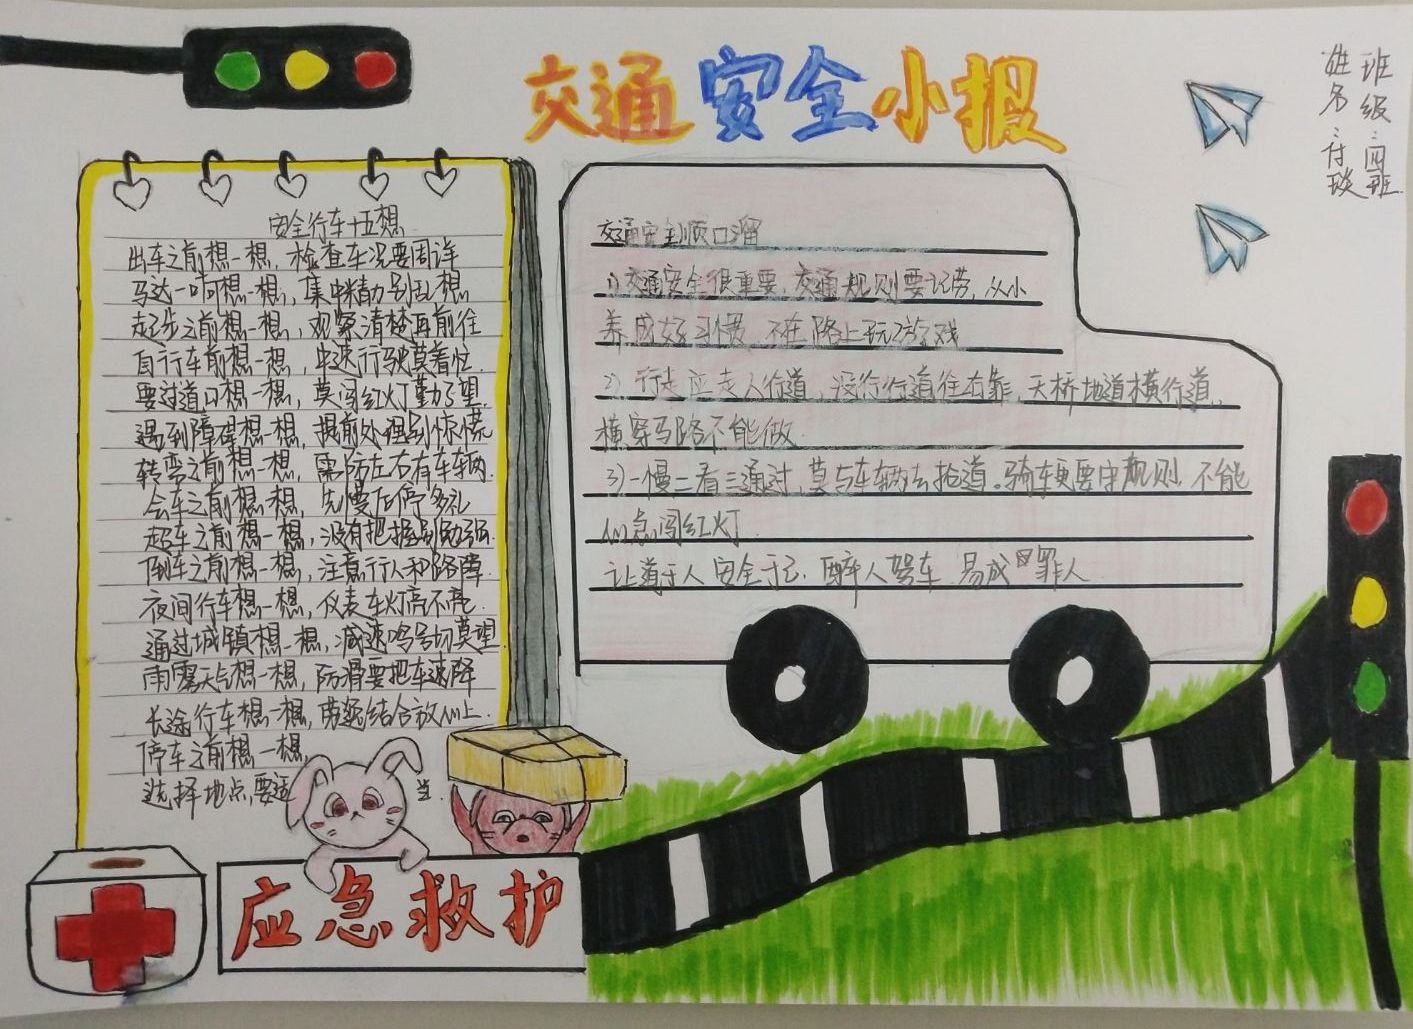 交通安全小报
班级：阅班
姓名：付琰
安全行车十五想
出车之前想一想，检查车况要周详
马达一响想一想，集中精力别乱想
起步之前想一想，观察清楚再前往
自行车前想一想，中速行驶莫着忙
要过道口想一想，莫闯红灯勤了望
遇到障碍想一想，提前处理别惊慌
转弯之前想一想，需防左右有车辆
会车之前想一想，先慢后停多礼
超车之前想一想，没有把握别勉强
倒车之前想一想，注意行人和路障
夜间行车想一想，仪表车灯亮不亮
通过城镇想一想，减速鸣号切莫望
雨雾天气想一想，防滑要把车速降
长途行车想一想，劳逸结合放心上
停车之前想一想，
选择地点，要适当
交通安全顺口溜
1）交通安全很重要，交通规则要记劳，从小
养成好习惯，不在路上玩游戏
2）行走应走人行道，没行行道往右靠，天桥地道横行道，
横穿马路不能做
3）一慢二看三通过，莫与车辆去抢道。骑车更要守规则，不能
心急闯红灯
让道于人安全于己，醉人驾车，易成罪人
应急救护